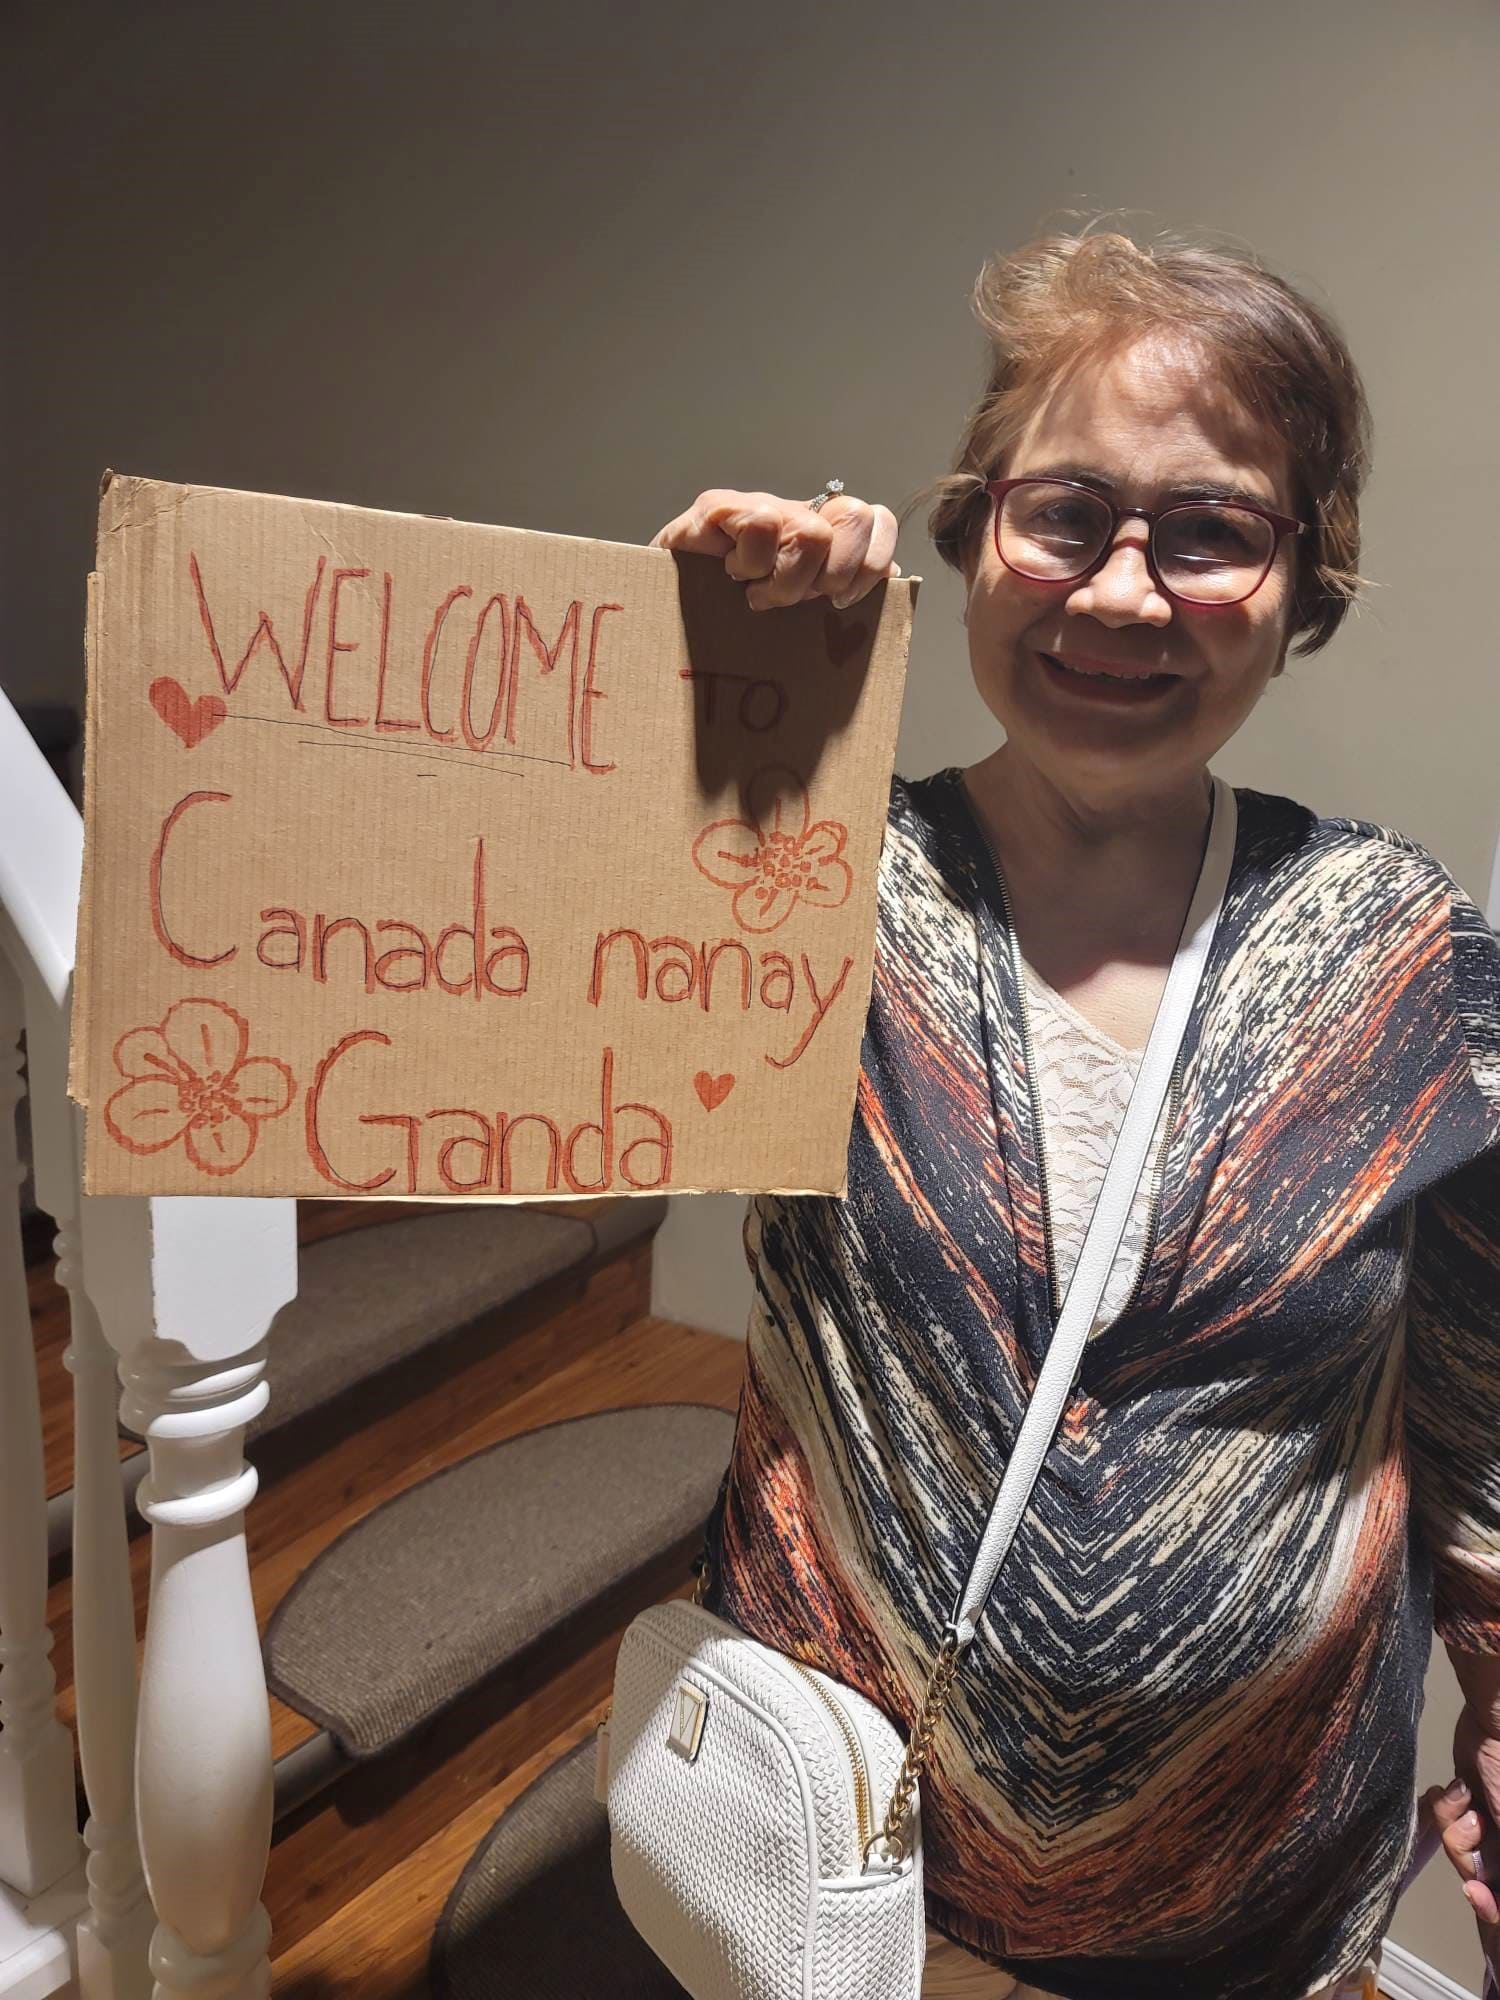 WELCOME TO
Canada nanay
Ganda